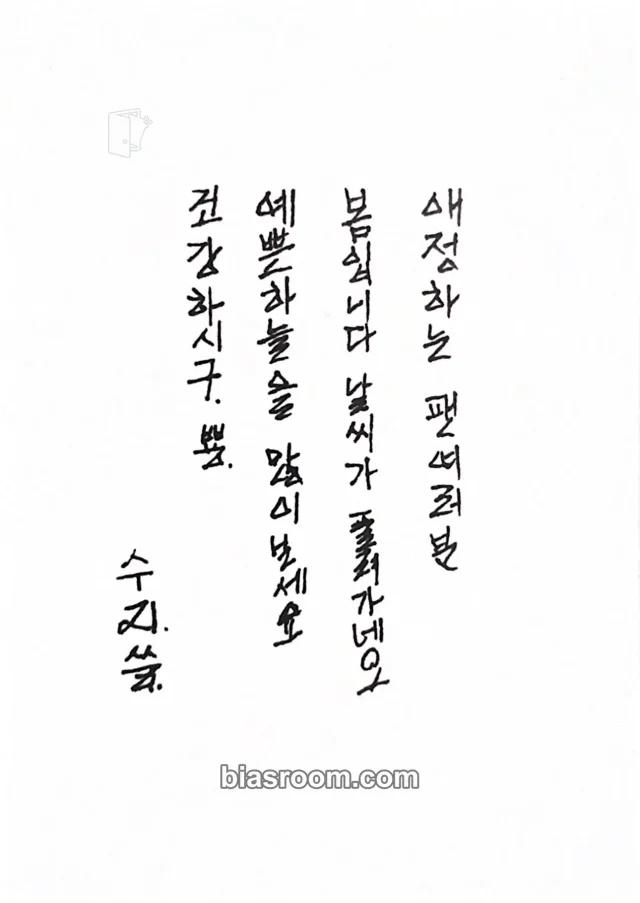 애정하는 팬 여러분
봄입니다 날씨가 풀려가네요
예쁜하늘을 많이보세요
건강하시구. 뿅.
수지. 씀.
biasroom.com